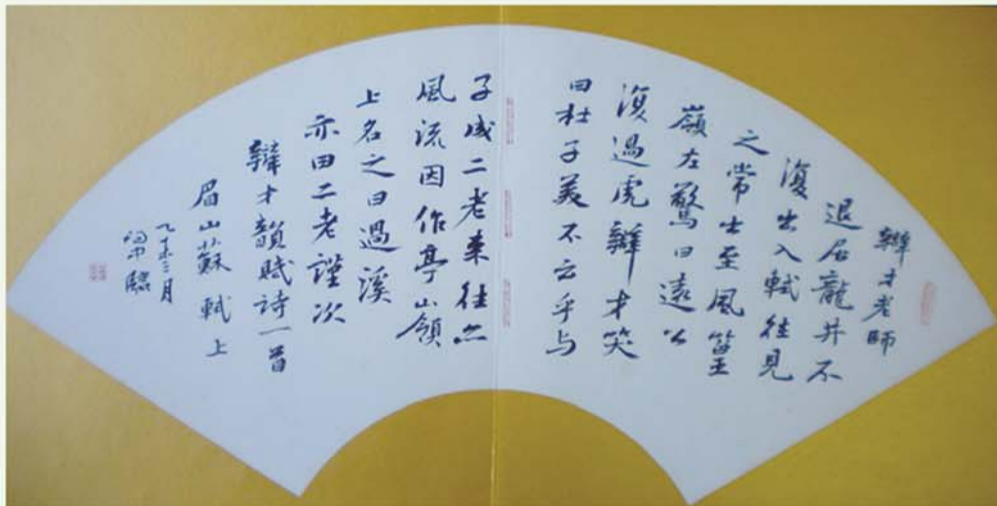 辯才老師
退居龍井不
復出入軾往見
之常出至風篁
嶺左驚曰遠公
復過虎辯才笑
曰杜子美不云乎与
子成二老来往亦
風流因作亭山領
上名之曰過溪
亦曰二老謹次
辯才韻賦詩一首
眉山蘇軾上
乙未三月
臨